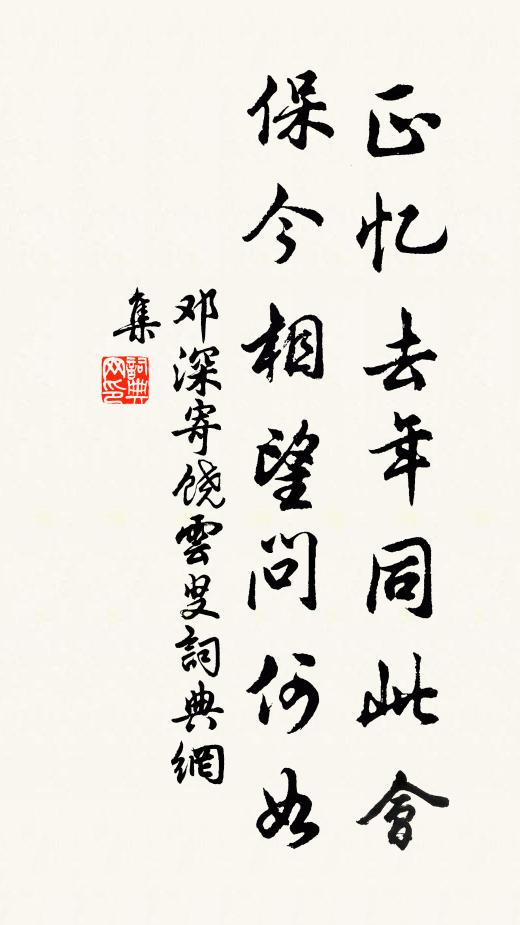 正忆去年同此會
保今相望问何如
邓深寄饶雲叟詞典網
集
詞典网印